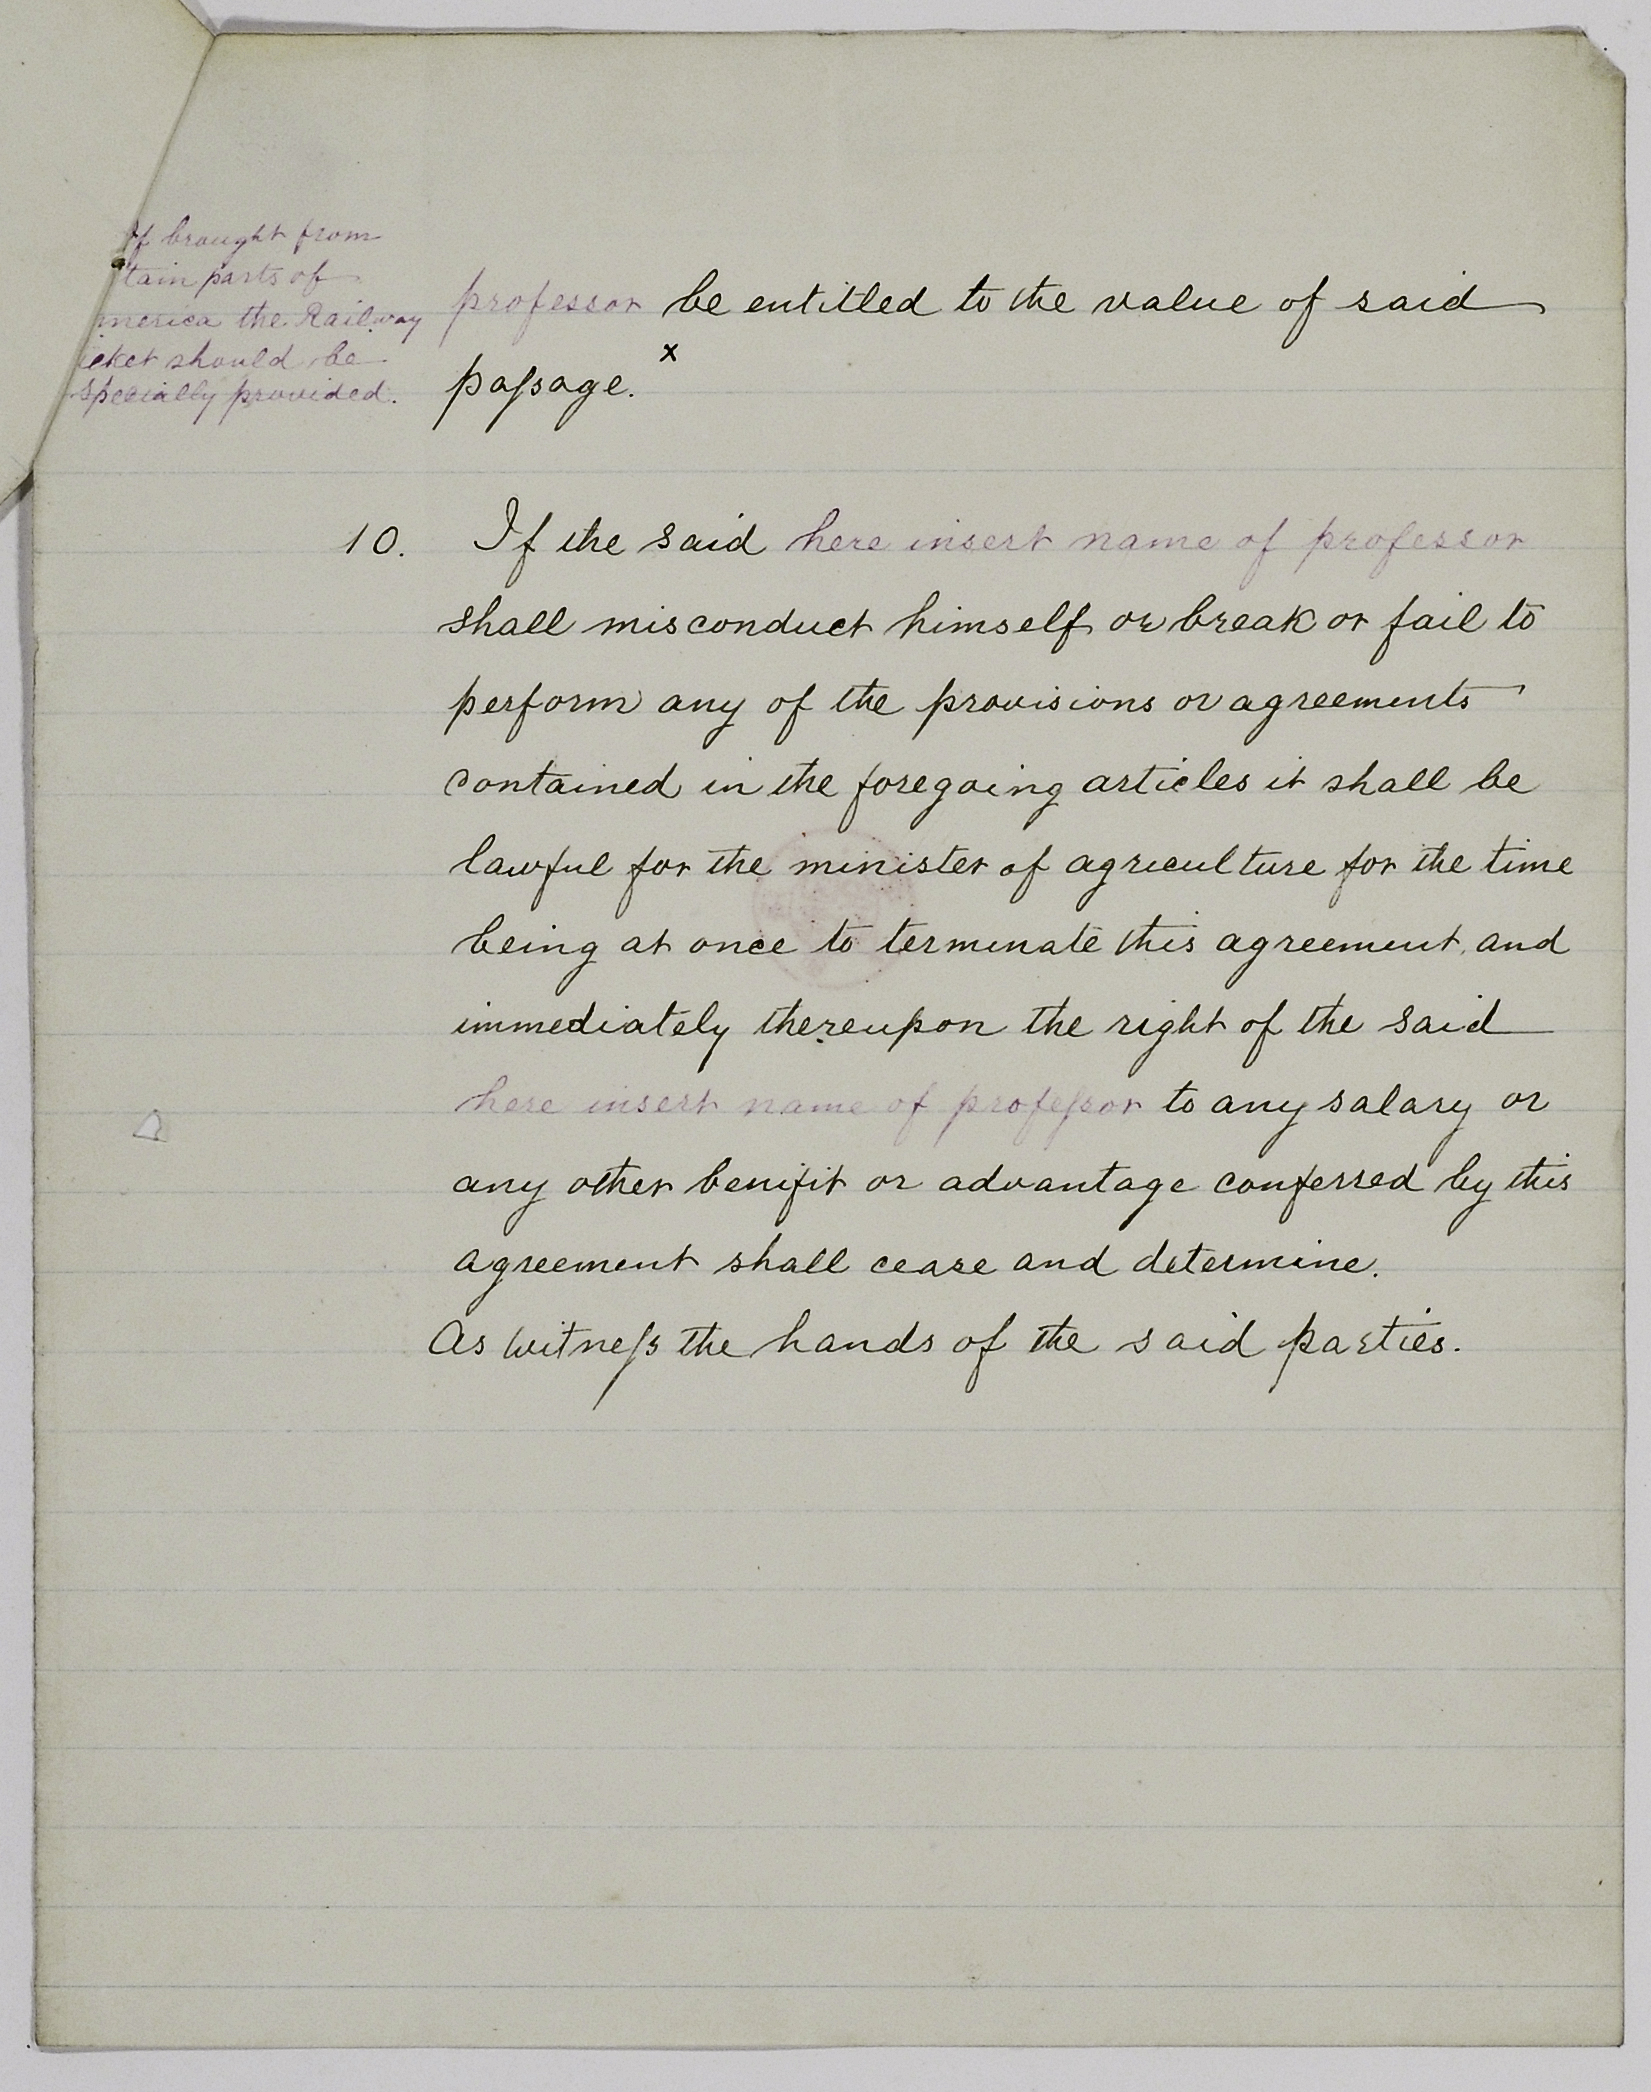 If brought from
tain parts of
merica the Railway
icket should be
specially provided.
professor be entitled to the value of said
paſsage. x
10. If the said here insert name of professor
shall misconduct himself or break or fail to
perform any of the provisions or agreements
contained in the foregoing articles it shall be
lawful for the minister of agriculture for the time
being at once to terminate this agreement and
immediately thereupon the right of the said
here insert name of profeſsor to any salary or
any other benifit or advantage conferred by this
agreement shall cease and determine.
As witneſs the hands of the said parties.